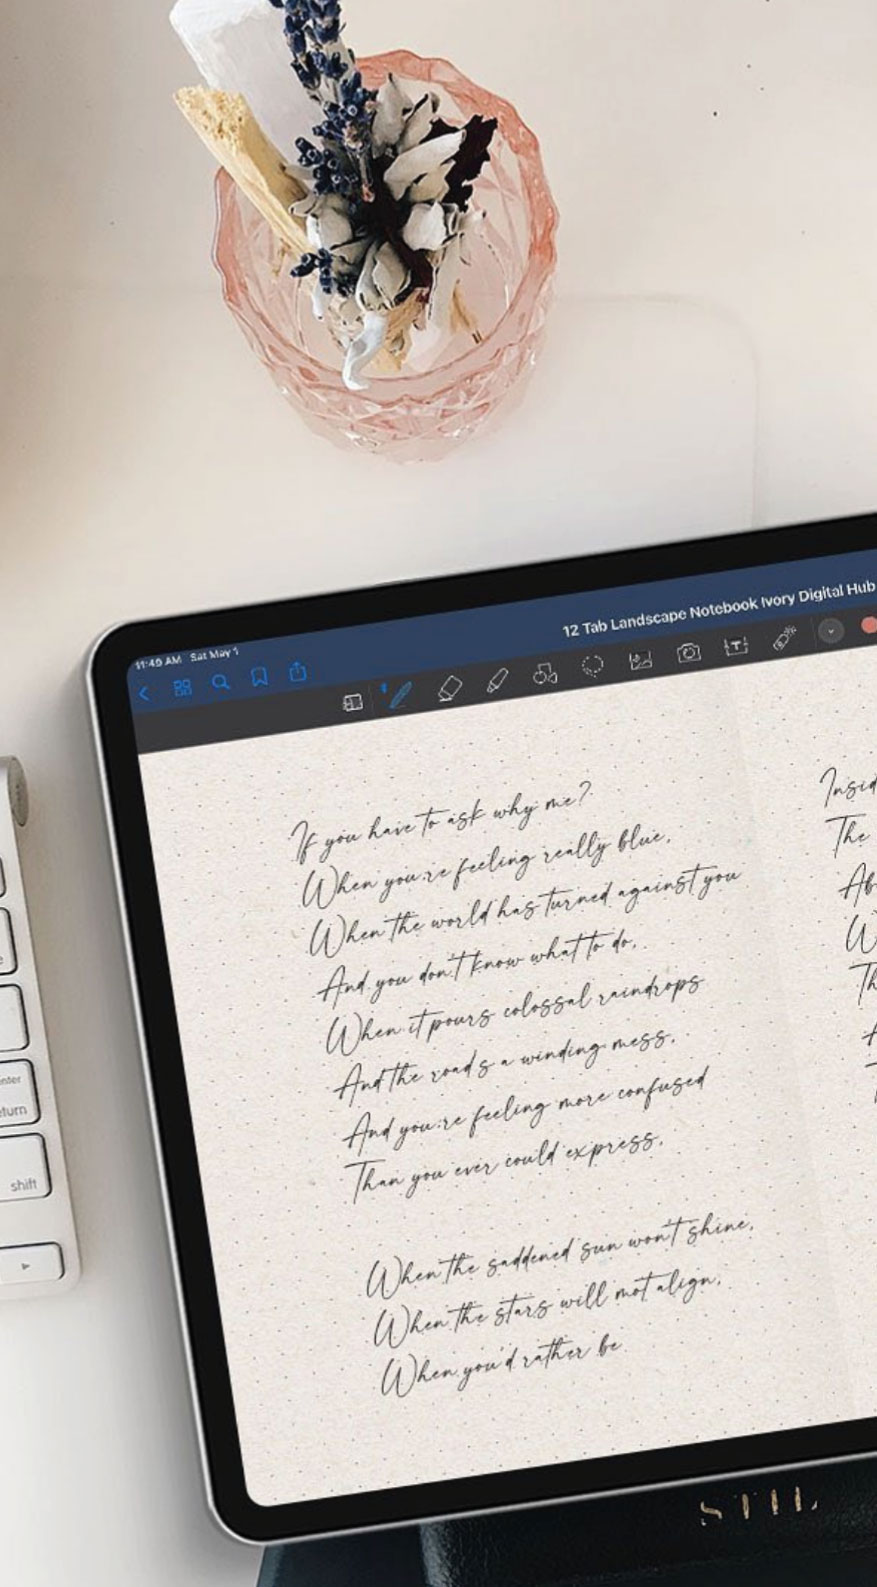 11:49 AM Sat May 1
12 Tab Landscape Notebook Ivory Digital Hub
If you have to ask why me?
When you're feeling really blue,
When the world has turned against you
And you don't know what to do,
When it pours colossal raindrops
And the road's a winding mess,
And you're feeling more confused
Than you ever could express,
When the saddened sun won't shine,
When the stars will mot align,
When you'd rather be
The
enter
eturn
shift
STIL